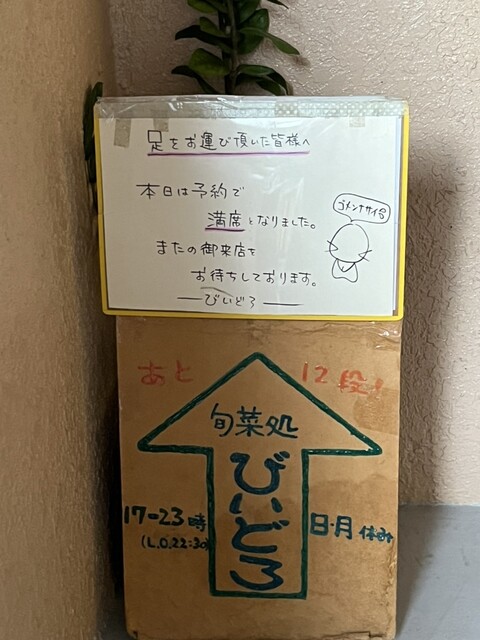 足をお運び頂いた皆様へ
本日は予約で
満席となりました。
またの御来店を
お待ちしております。
びいどろ
ゴメンナサイ
あと 12段!
旬菜処
びいどろ
17-23時
(L.O.22:30)
日・月 休み